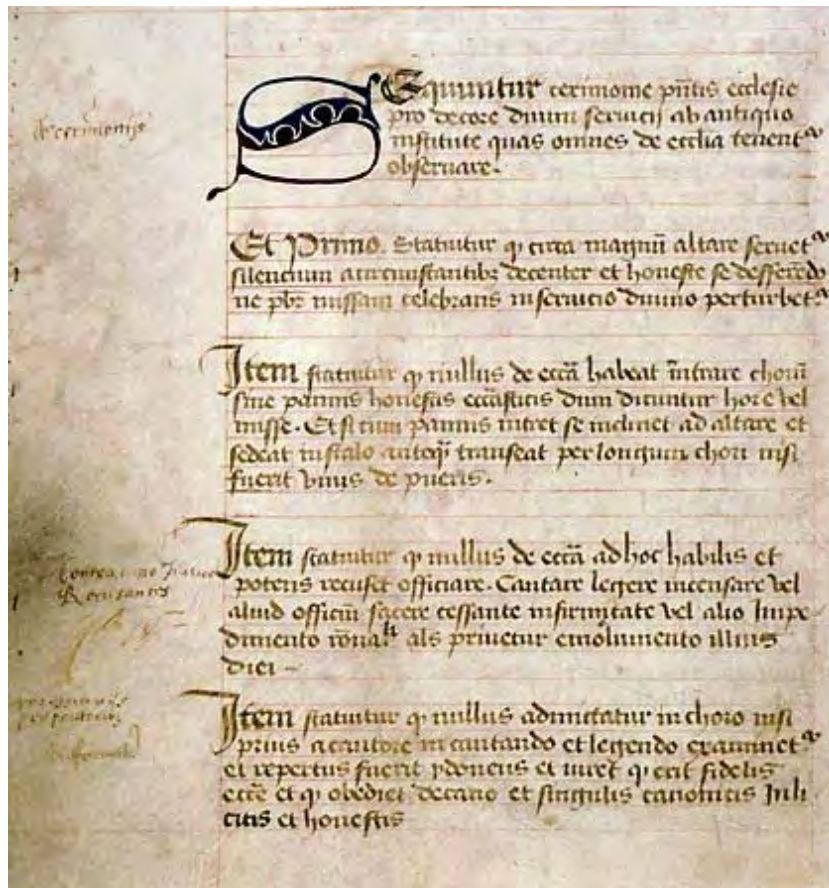 de cerimonijs
Sequuntur cerimonie pñtis ecclesie
pro decore diuini seruicij ab antiquo
institute quas omnes de ecclia tenent
obseruare.
Et Primo. Statuitur q circa magnũ altare seruet
silencium a circumstantibz decenter et honeste se defferẽdo
ne pbr missam celebrans in seruicio diuino perturbet
Item statuitur q nullus de eccã habeat ĩntrare chorũ
sine pannis honestis eccãsticis dum dicuntur hore vel
misse. Et si cum pannis intret se inclinet ad altare et
sedeat in stalo anteq̃ transeat per longum chori nisi
fuerit vnus de pueris.
Item statuitur q nullus de eccã ad hoc habilis et
potens recuset officiare. Cantare legere incensare vel
aliud officiũ facere cessante infirmitate vel alio Impe
dimento als priuetur emolumento illius
diei
Recusantes
Item statuitur q nullus admittatur in choro nisi
prius a cantore in cantando et legendo examinet
et repertus fuerit ydoneus et iuret q erit fidelis
eccẽ et q obediet decano et singulis canonicis In li
citis et honestis